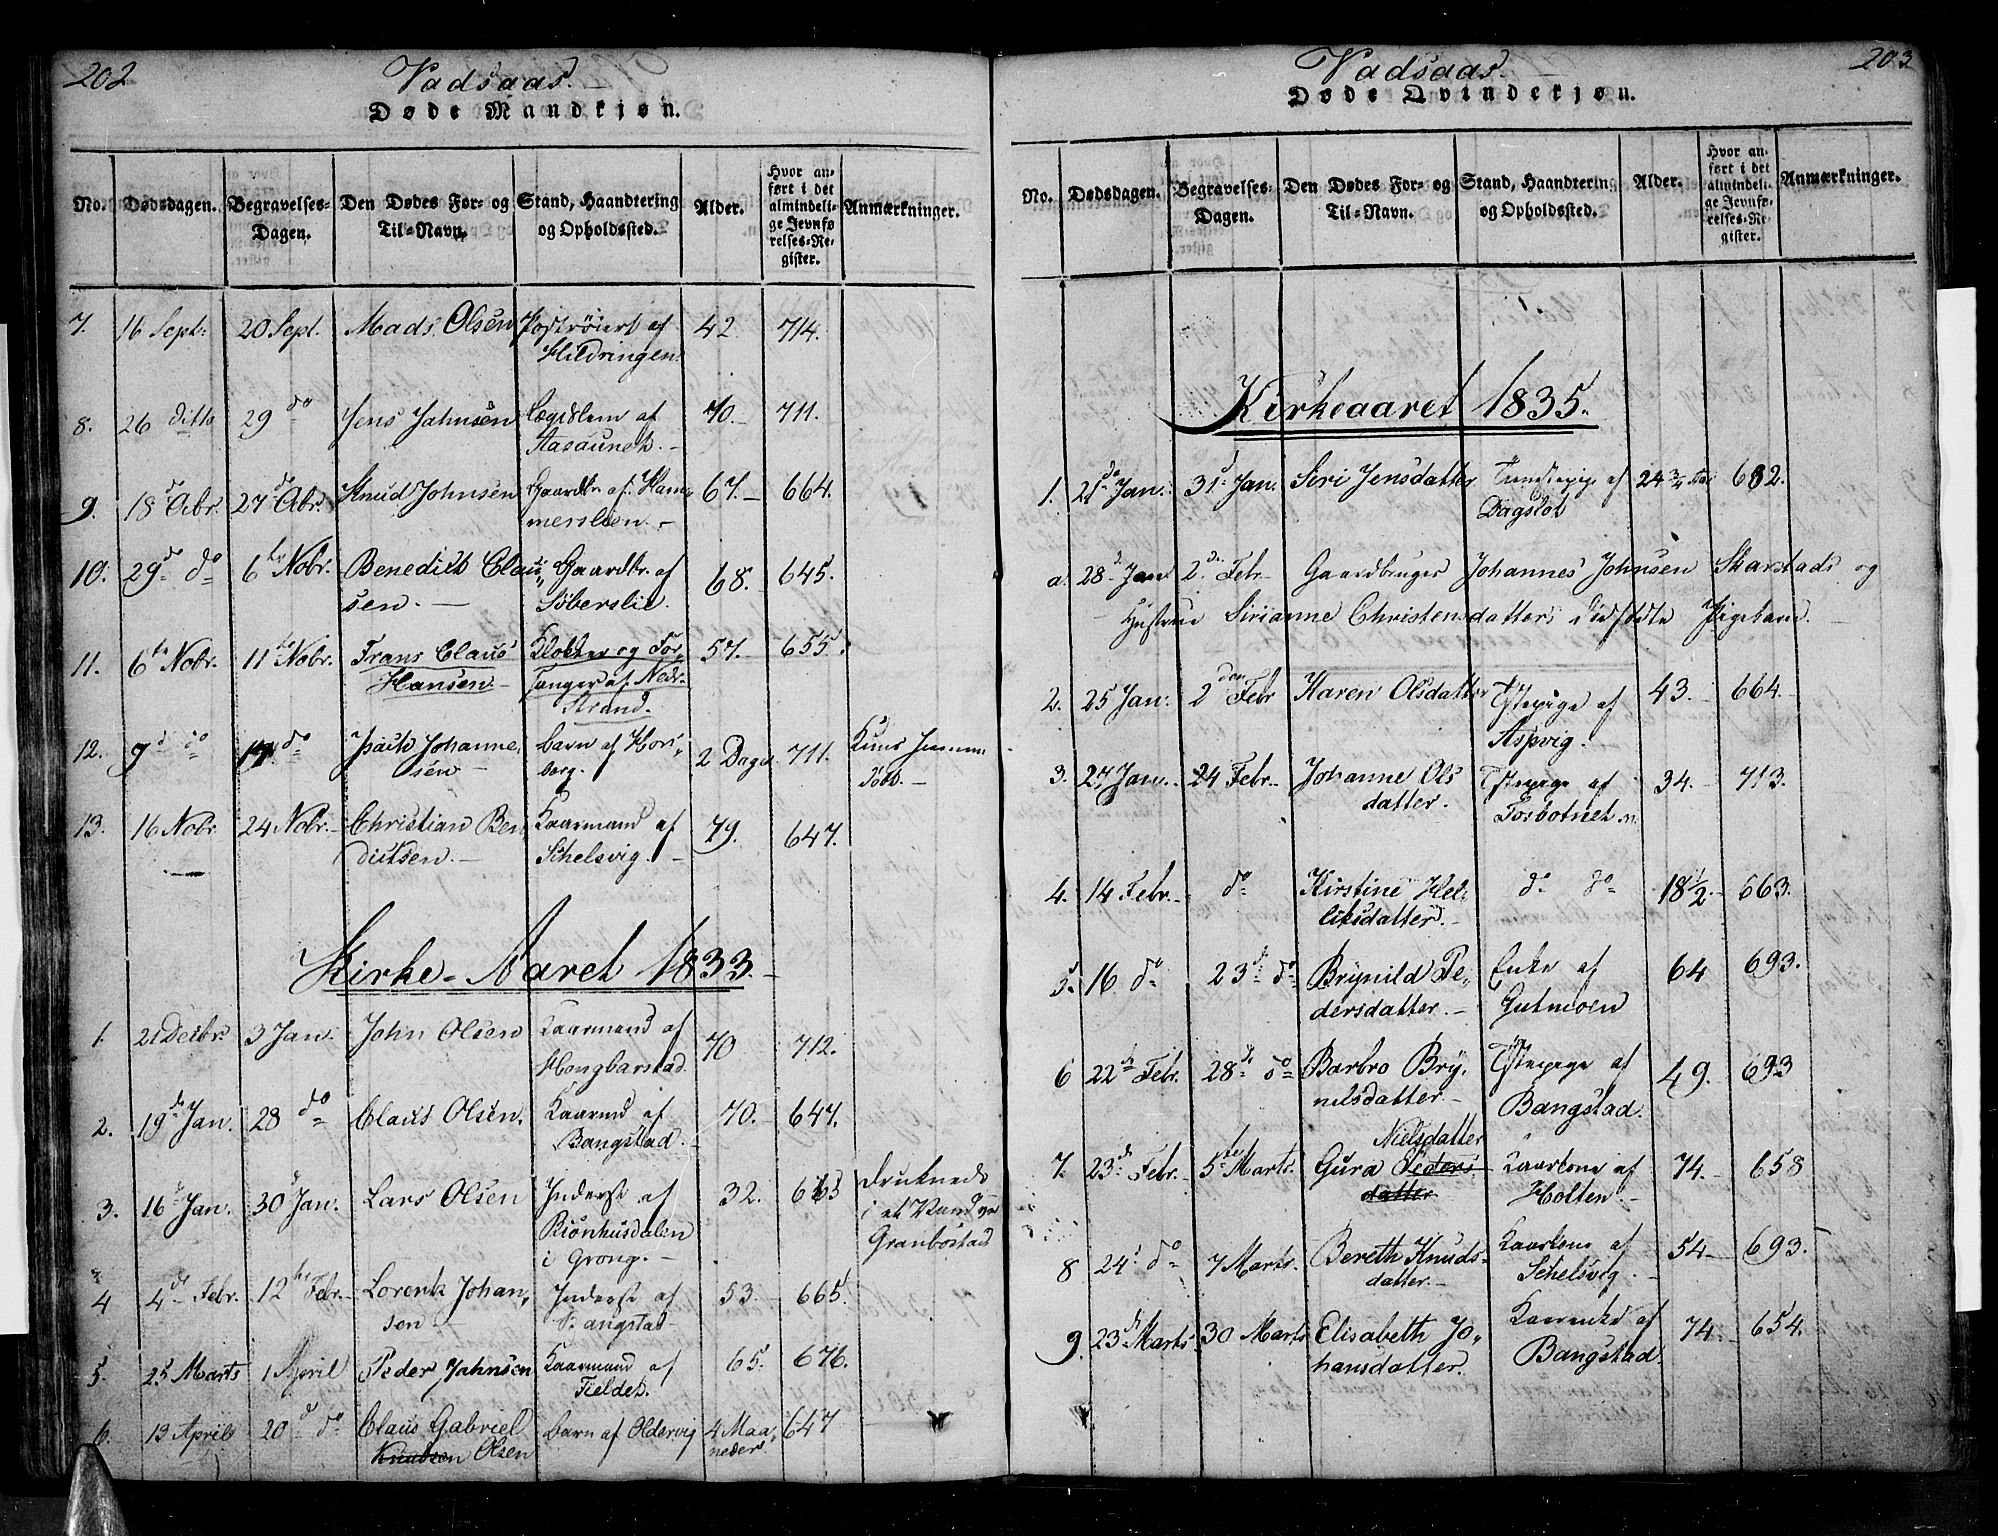 202
Vadsaas.
Døde Mandkjøn.
No. Dødsdagen. Begravelses-Dagen. Den Dødes For- og Til-Navn. Stand, Haandtering og Opholdssted. Alder. Hvor anført i det almindelige Jevnførelses-Register. Anmærkninger.
7. 16 Sept: 20 Sept. Mads Olsen af Hildringen 42. 714.
8. 26 ditto 29 do Jens Jahnsen Lægdslem af Aasaunet. 70. 711.
9. 18 d Obr. 27 d Obr. Knud Johnsen Gaardbr. af Hammerslien. 67. 664.
10. 29 d do 6te Nobr. Benedict Claussen. Gaardbr. af Søberslie. 68. 645.
11. 6te Nobr. 11te Nobr. Frans Claus Hansen Klokker og Forsanger af Nedr-Strand. 57. 655.
12. 9 d do 17. do Johannesen barn af Horsberg. 2 Dage 711.
13. 16 Nobr 24 Nobr. Christian Bendictsen. Kaarmand af Schelsvig. 79. 647.
Kirke-Aaret 1833.
1. 21 Decbr. 3 Jan. John Olsen Kaarmand af Hongbarstad. 70 712.
2. 19 d Jan. 28 do Claus Olsen. Kaarmd af Bangstad. 70. 647.
3. 16 d Jan. 30 d Jan. Lars Olsen Inderst af Biönhusdalen i Grong. 32. 663 Druknede i et Vand Granbostad
4 4 d Febr. 12te Febr. Lorentz Johansen Inderst af Bangstad 53. 665.
5. 25 Marts 1 April Peder Jahnsen Kaarmand af Fieldet. 65. 676.
6. 13 April 20 d do Claus Gabriel Knudsen Olsen barn af Oldervig 4 Maaneder 647
203
Vadsaas.
Døde Qvindekjøn.
No. Dødsdagen. Begravelses-Dagen. Den Dødes For- og Til-Navn. Stand, Haandtering og Opholdssted. Alder. Hvor anført i det almindelige Jevnførelses-Register. Anmærkninger.
Kirkeaaret 1835.
1. 21 d Jan. 31 d Jan. Siri Jensdatter Tienstepige af Dagslot 24 3/4 682.
a. 28 d Jan 2 d. Febr. Gaardbruger Johannes Johnsen Skarstads og
Hustrue Sirianne Christensdatters dödfödte Pigebarn.
2. 25 Jan. 2 den Febr Karen Olsdatter Tstepige af Aspvig. 43. 664.
3. 27 Jan. 24 Febr. Johanne Olsdatter. Tstepige af Tosbotnet. 34. 713.
4. 14 Febr. do Kirstine do do 18 1/2. 663.
5. 16 do 23 d do Brynild Pedersdatter. Enke af Gutmoen 64 693.
6 22 d Febr. 28 d do Barbro Brynilsdatter. Tstepige af Bangstad. 49. 693
7. 23 d Febr. 5te Marts. Gura Peders datter Nielsdatter Kaarkone af Holten. 74. 658
8 24 d do 7 Marts. Bereth Knudsdatter. Kaarkone af Schelsvig. 54 693.
9. 23 d Marts 30 Marts Elisabeth Johansdatter. Kaarenke af Bangstad. 74. 654.